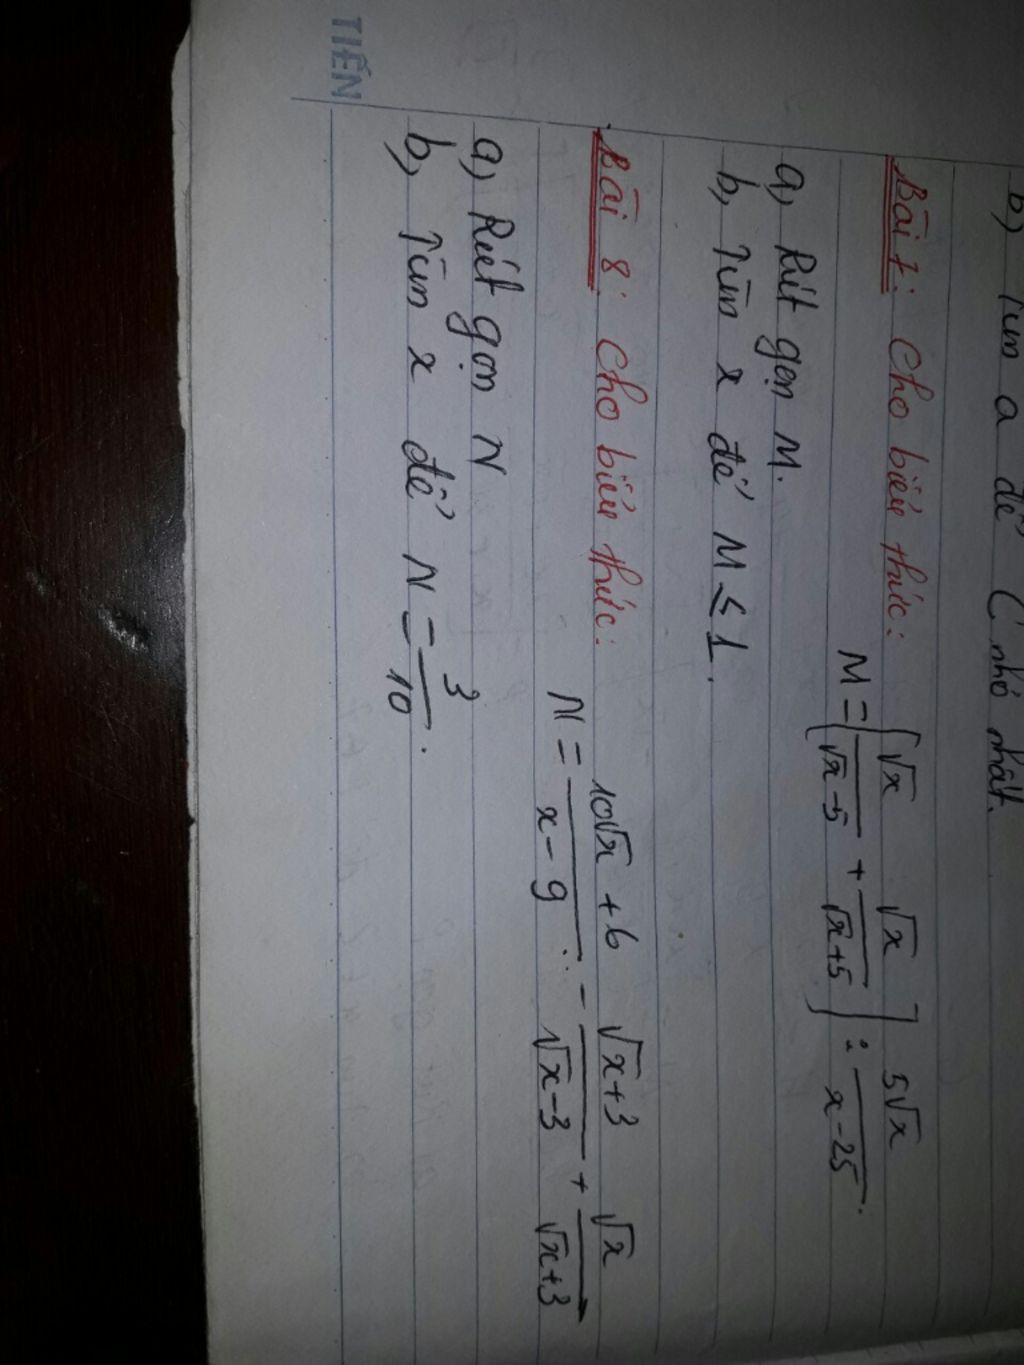 b) Tìm a để C nhỏ nhất.
Bài 7: Cho biểu thức:
M = [√x/(√x-5) + √x/(√x+5)] : 5√x/(x-25).
a, Rút gọn M.
b, Tìm x để M ≤ 1.
Bài 8: Cho biểu thức:
N = (10√x + 6)/(x-9) - (√x+3)/(√x-3) + √x/(√x+3)
a, Rút gọn N
b, Tìm x để N = 3/10.
TIẾN